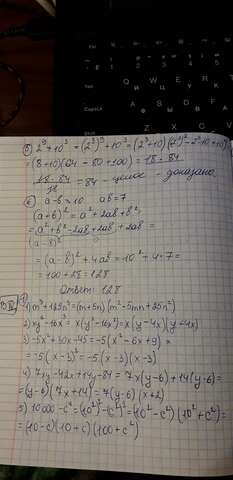 5) 2⁹ + 10³ = (2³)³ + 10³ = (2³ + 10)((2³)² - 2³·10 + 10²)
= (8 + 10)(64 - 80 + 100) = 18 · 84
18 · 84 / 18 = 84 - целое - доказано
6) a - b = 10 ab = 7
(a + b)² = a² + 2ab + b²
= a² + b² - 2ab + 2ab + 2ab =
(a - b)²
= (a - b)² + 4ab = 10² + 4 · 7 =
= 100 + 28 = 128
Ответ: 128
1) m³ + 125n³ = (m + 5n)(m² - 5mn + 25n²)
2) xy² - 16x³ = x(y² - 16x²) = x(y - 4x)(y + 4x)
3) -5x² + 30x - 45 = -5(x² - 6x + 9) =
= -5(x - 3)² = -5(x - 3)(x - 3)
4) 7xy - 42x + 14y - 84 = 7x(y - 6) + 14(y - 6) =
= (y - 6)(7x + 14) = 7(y - 6)(x + 2)
5) 10 000 - c⁴ = (10²)² - (c²)² = (10² - c²)(10² + c²) =
= (10 - c)(10 + c)(100 + c²)